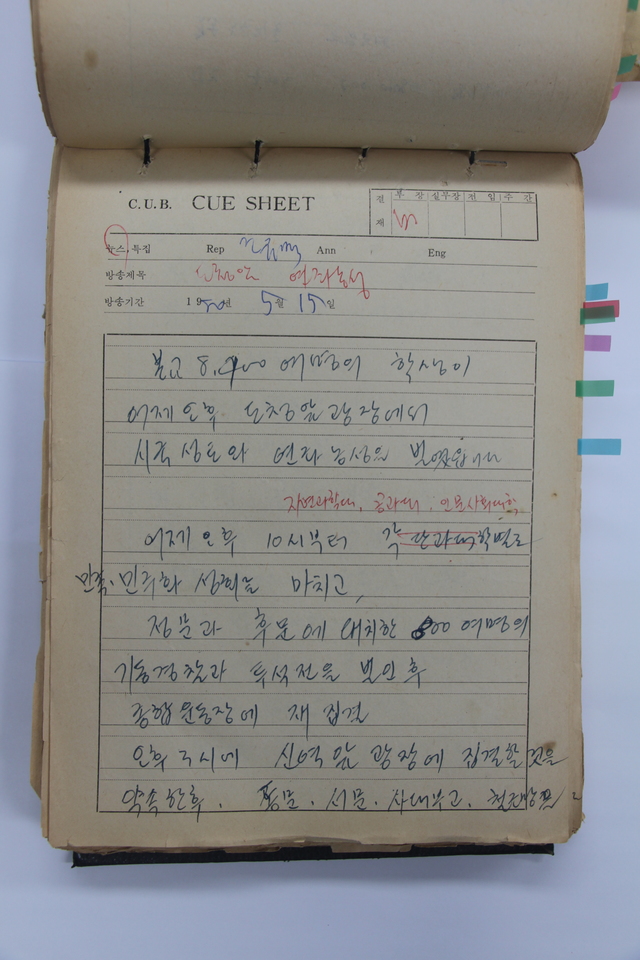 C.U.B. CUE SHEET
결 재 부장 실무장 전임 주간
뉴스, 특집 Rep Ann Eng
방송제목 연좌농성
방송기간 1980년 5월 15일
본교 8,400 여명의 학생이
어제 오후 도청앞 광장에서
시국 성토와 연좌 농성을 벌였읍니다
자연과학대, 공과대, 인문사회대학
어제 오후 10시부터 각 단과대학별로
민족·민주화 성회를 마치고,
정문과 후문에 대치한 800 여명의
기동경찰과 투석전을 벌인 후
종합운동장에 재 집결
오후 3시에 신역 앞 광장에 집결할 것을
약속한후, 정문, 서문, 사대부고,